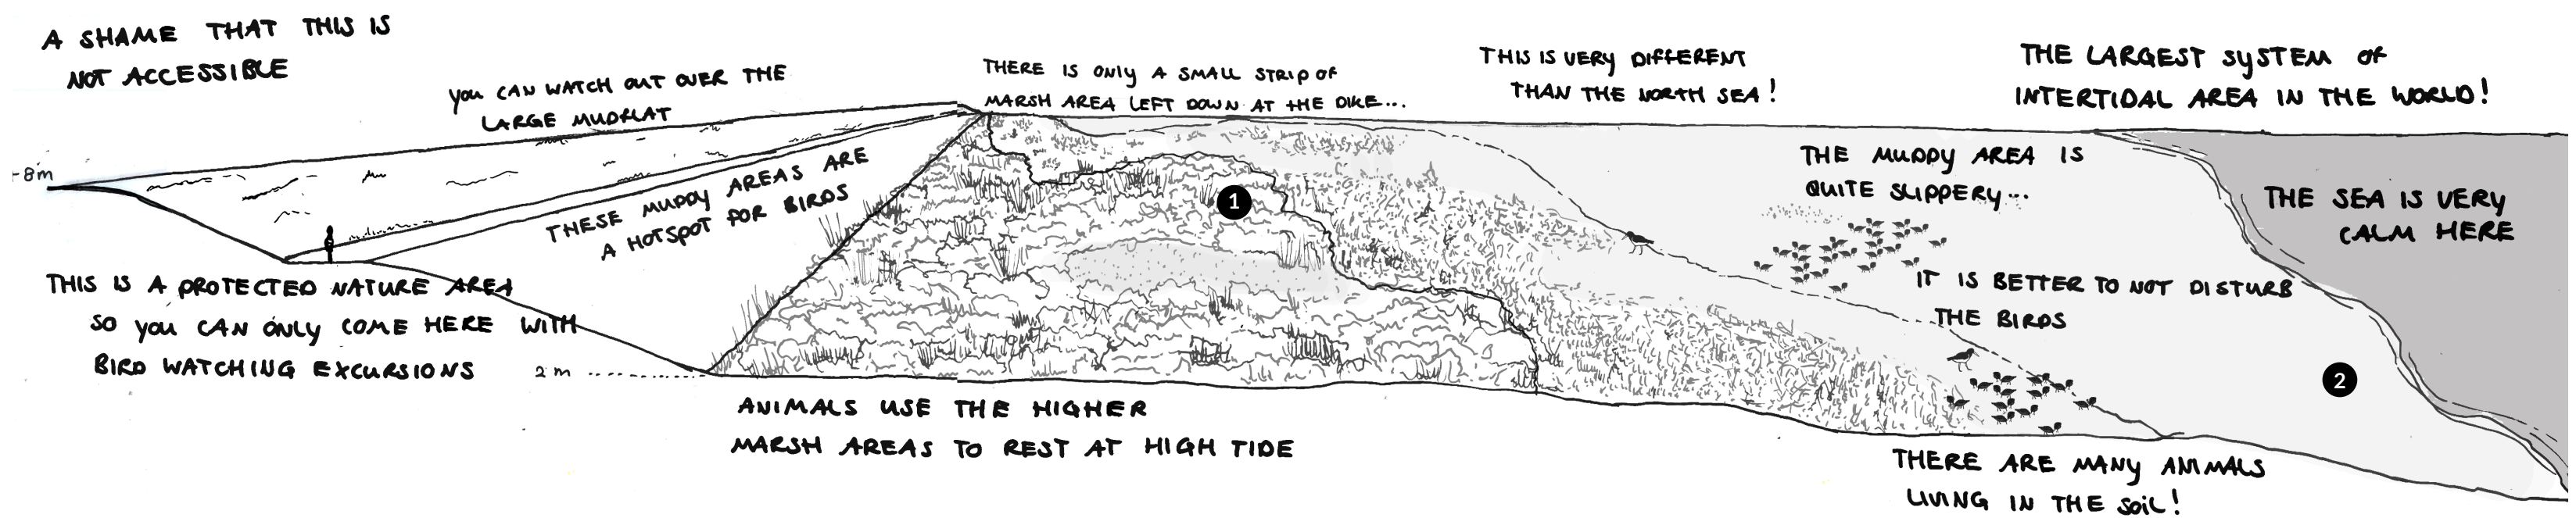 A SHAME THAT THIS IS
NOT ACCESSIBLE
YOU CAN WATCH OUT OVER THE
LARGE MUDFLAT
THERE IS ONLY A SMALL STRIP OF
MARSH AREA LEFT DOWN AT THE DIKE...
THIS IS VERY DIFFERENT
THAN THE NORTH SEA!
THE LARGEST SYSTEM OF
INTERTIDAL AREA IN THE WORLD!
-8m
THESE MUDDY AREAS ARE
A HOTSPOT FOR BIRDS
1
THE MUDDY AREA IS
QUITE SLIPPERY...
THE SEA IS VERY
CALM HERE
THIS IS A PROTECTED NATURE AREA
SO YOU CAN ONLY COME HERE WITH
BIRD WATCHING EXCURSIONS
2 m
IT IS BETTER TO NOT DISTURB
THE BIRDS
2
ANIMALS USE THE HIGHER
MARSH AREAS TO REST AT HIGH TIDE
THERE ARE MANY ANIMALS
LIVING IN THE SOIL!